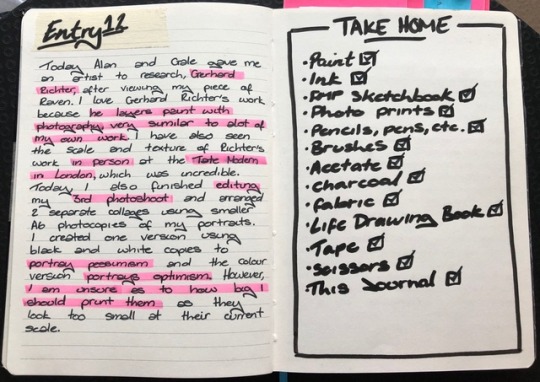 Entry 12
Today Alan and Cale gave me
an artist to research, Gerhard
Richter, after viewing my piece of
Raven. I love Gerhard Richter's work
because he layers paint with
photography very similar to alot of
my own work. I have also seen
the scale and texture of Richter's
work in person at the Tate Modern
in London, which was incredible.
Today, I also finished editing
my 3rd photoshoot and arranged
2 separate collages using smaller
A6 photocopies of my portraits.
I created one version using
black and white copies to
portray pessimism and the colour
version portrays optimism. However,
I am unsure as to how big I
should print them as they
look too small at their current
scale.
TAKE HOME
·Paint ☑
·Ink ☑
·FMP Sketchbook ☑
·Photo prints ☑
·Pencils, pens, etc. ☑
·Brushes ☑
·Acetate ☑
·charcoal ☑
·fabric ☑
·Life Drawing Book ☑
·Tape ☑
·scissors ☑
·This Journal ☑